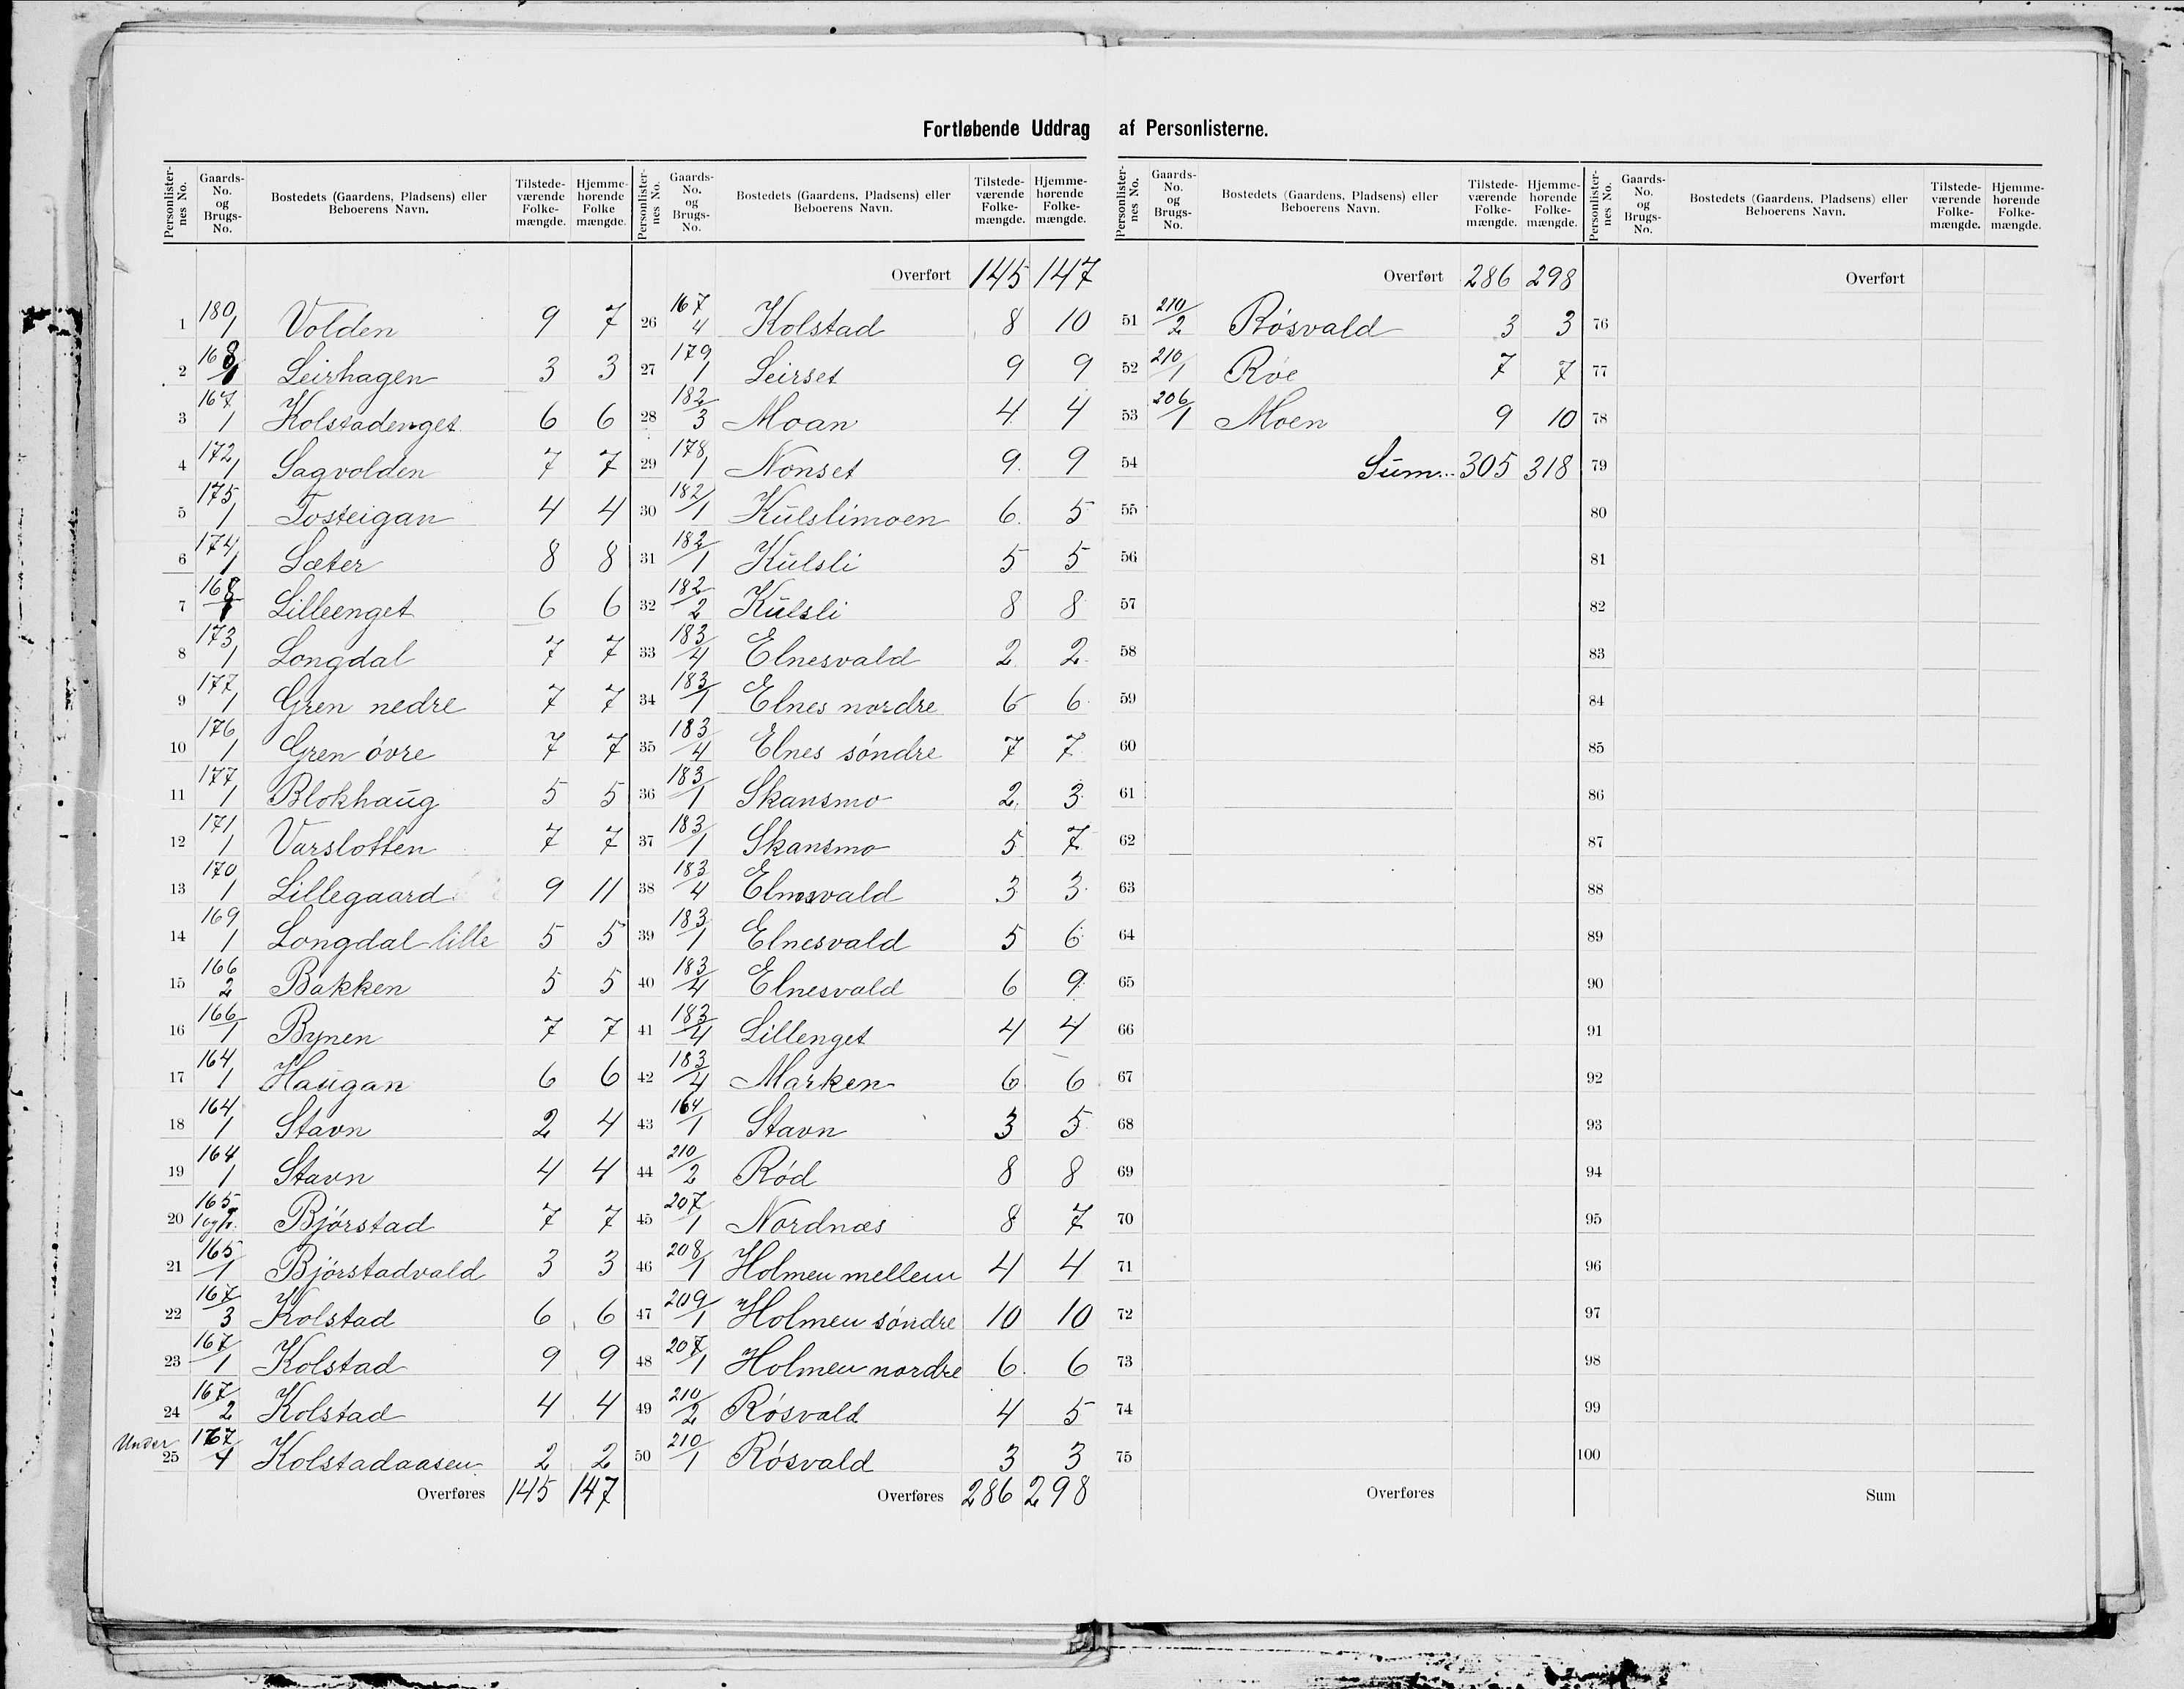 Fortløbende Uddrag af Personlisterne.
Personlisternes No. Gaards-No. og Brugs-No. Bostedets (Gaardens, Pladsens) eller Beboerens Navn. Tilstedeværende Folkemængde. Hjemmehørende Folkemængde.
1 180/1 Volden 9 7
2 168/1 Leirhagen 3 3
3 167/1 Kolstadenget 6 6
4 172/1 Sagvolden 7 7
5 175/1 Tosteigan 4 4
6 174/1 Sæter 8 8
7 168/1 Lilleenget 6 6
8 173/1 Longdal 7 7
9 177/1 Gren nedre 7 7
10 176/1 Gren óvre 7 7
11 177/1 Blokhaug 5 5
12 171/1 Varslotten 7 7
13 170/1 Lillegaard 9 11
14 169/1 Longdal lille 5 5
15 166/2 Bakken 5 5
16 166/1 Bynen 7 7
17 164/1 Haugan 6 6
18 164/1 Stavn 2 4
19 164/1 Stavn 4 4
20 165 Bjórstad 7 7
21 165/1 Bjórstadvald 3 3
22 167/3 Kolstad 6 6
23 167/1 Kolstad 9 9
24 167/2 Kolstad 4 4
Under
25 167/4 Kolstadaasen 2 2
Overføres 145 147
Personlisternes No. Gaards-No. og Brugs-No. Bostedets (Gaardens, Pladsens) eller Beboerens Navn. Tilstedeværende Folkemængde. Hjemmehørende Folkemængde.
Overført 145 147
26 167/4 Kolstad 8 10
27 179/1 Leirset 9 9
28 182/3 Moan 4 4
29 178/1 Nonset 9 9
30 182/1 Kulslimoen 6 5
31 182/1 Kulsli 5 5
32 182/2 Kulsli 8 8
33 183/4 Elnesvald 2 2
34 183/1 Elnes nordre 6 6
35 183/4 Elnes sóndre 7 7
36 183/1 Skansmo 2 3
37 183/1 Skansmo 5 7
38 183/4 Elnesvald 3 3
39 183/1 Elnesvald 5 6
40 183/4 Elnesvald 6 9
41 183/4 Lillenget 4 4
42 183/4 Marken 6 6
43 164/1 Stavn 3 5
44 210/2 Ród 8 8
45 207/1 Nordnæs 8 7
46 208/1 Holmen mellem 4 4
47 209/1 Holmen sóndre 10 10
48 207/1 Holmen nordre 6 6
49 210/2 Rósvald 4 5
50 210/1 Rósvald 3 3
Overføres 286 298
Personlisternes No. Gaards-No. og Brugs-No. Bostedets (Gaardens, Pladsens) eller Beboerens Navn. Tilstedeværende Folkemængde. Hjemmehørende Folkemængde.
Overført 286 298
51 210/2 Rósvald 3 3
52 210/1 Róe 7 7
53 206/1 Moen 9 10
54 Sum... 305 318
55
56
57
58
59
60
61
62
63
64
65
66
67
68
69
70
71
72
73
74
75
Overføres
Personlisternes No. Gaards-No. og Brugs-No. Bostedets (Gaardens, Pladsens) eller Beboerens Navn. Tilstedeværende Folkemængde. Hjemmehørende Folkemængde.
Overført
76
77
78
79
80
81
82
83
84
85
86
87
88
89
90
91
92
93
94
95
96
97
98
99
100
Sum